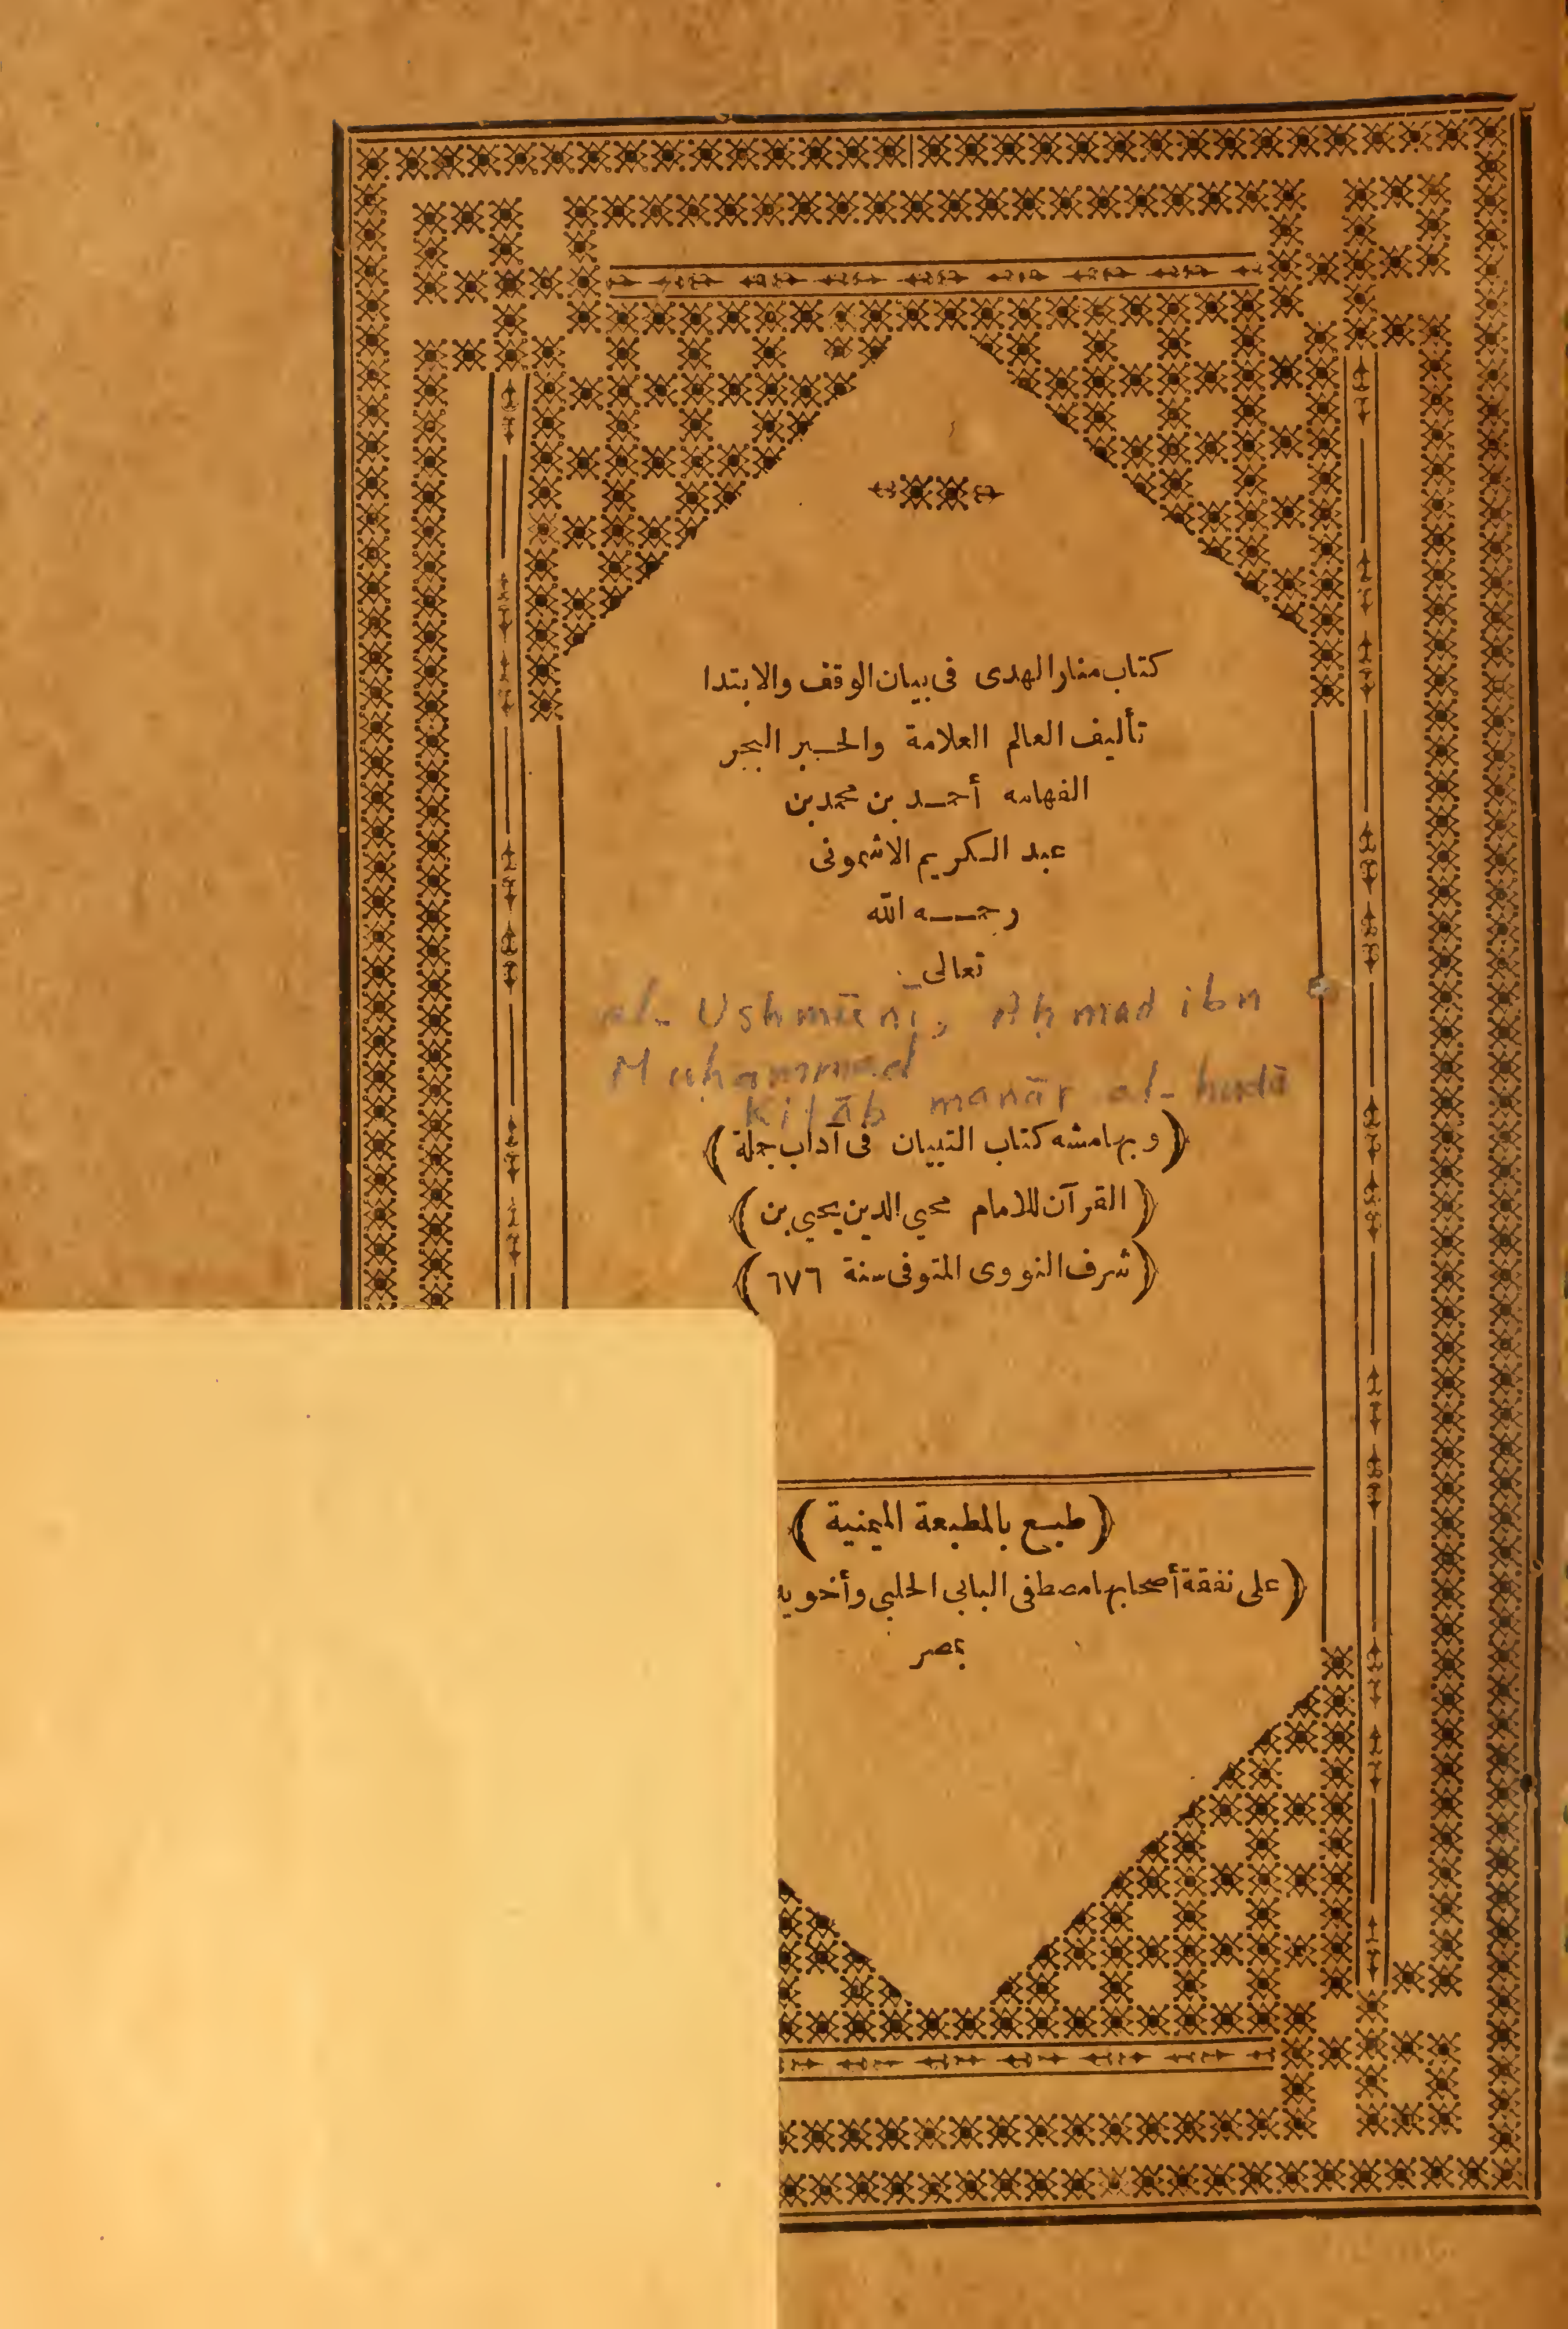 كتاب منار الهدى فى بيان الوقف والابتدا
تأليف العالم العلامة والحبر البحر
الفهامه أحمد بن محمد بن
عبد الكريم الاشمونى
رحمه الله
تعالى
al-Ushmūnī, Aḥmad ibn
Muḥammad
Kitāb manār al-hudā
(وبهامشه كتاب التبيان فى آداب حملة)
(القرآن للامام محيى الدين يحيى بن)
(شرف النووى المتوفى سنة ٦٧٦)
(طبع بالمطبعة الميمنية)
(على نفقة أصحابها مصطفى البابى الحلبى وأخويه
بمصر